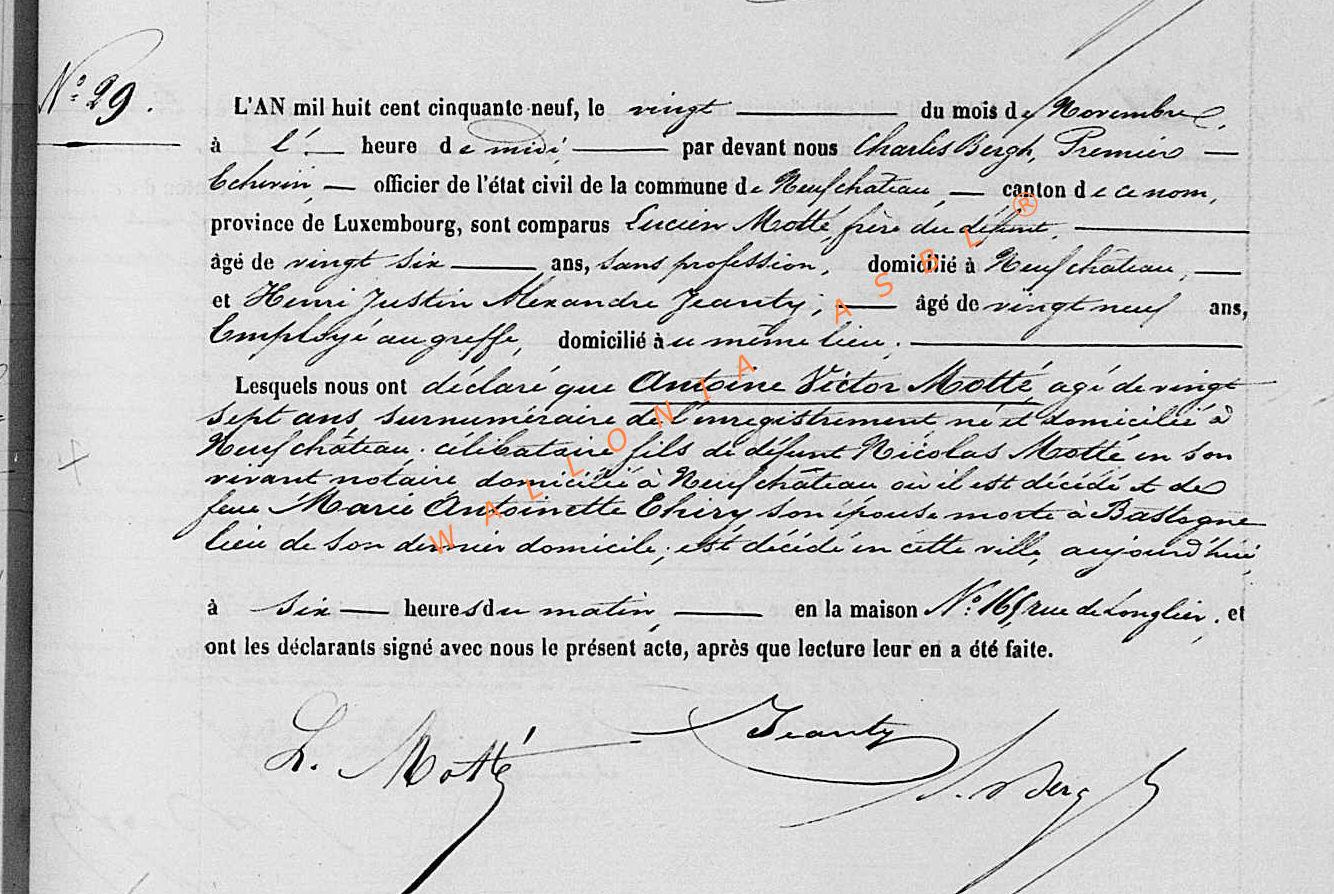 N° 29.
L'AN mil huit cent cinquante-neuf, le vingt du mois de Novembre,
à l' heure de midi, par devant nous Charles Bergh, Premier
Echevin, officier de l'état civil de la commune de Neufchâteau, canton de ce nom,
province de Luxembourg, sont comparus Lucien Motté, frère du défunt,
âgé de vingt six ans, sans profession, domicilié à Neufchâteau,
et Henri Justin Alexandre Jeanty, âgé de vingt neuf ans,
Employé au greffe, domicilié au même lieu.
Lesquels nous ont déclaré que Antoine Victor Motté, agé de vingt
sept ans surnuméraire de l'enregistrement né et domicilié à
Neufchâteau. célibataire fils de défunt Nicolas Motté en son
vivant notaire domicilié à Neufchâteau où il est décédé et de
feue Marie Antoinette Thiry son épouse morte à Bastogne
lieu de son dernier domicile, est décédé en cette ville, aujourd'hui,
à six heures du matin, en la maison N° 165, rue de Longlier, et
ont les déclarants signé avec nous le présent acte, après que lecture leur en a été faite.
L. Motté Jeanty Bergh
WALLONIA ASBL ®